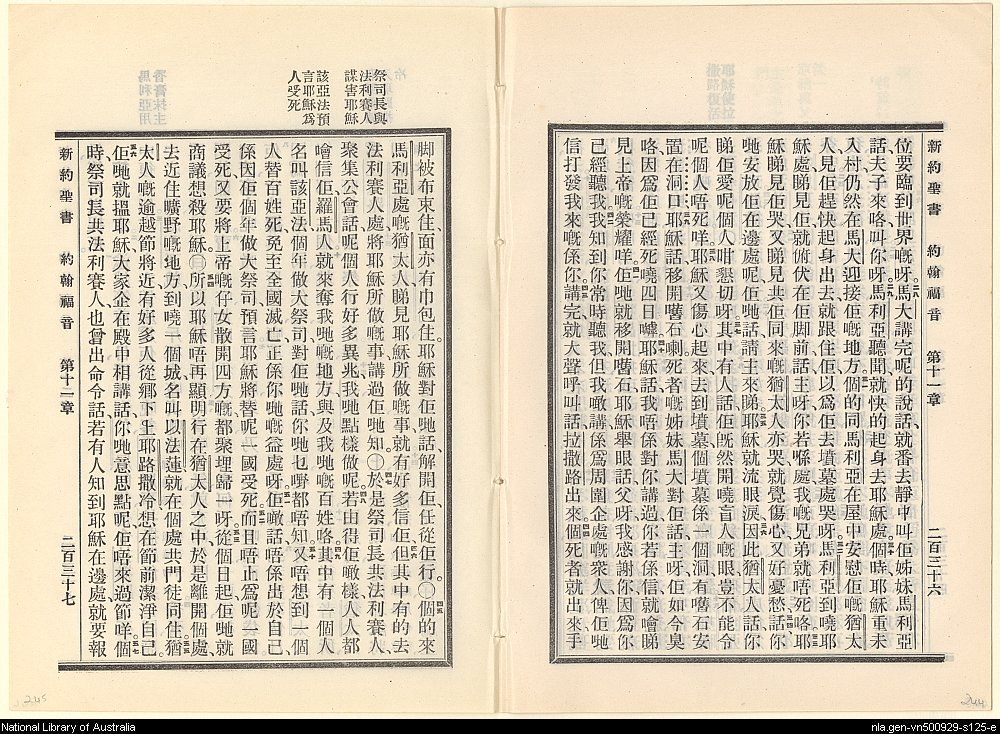 新約聖書 約翰福音 第十一章 二百三十六
位要臨到世界嘅呀馬大講完呢的說話就番去靜中叫佢姊妹馬利亞
話夫子來咯叫你呀馬利亞聽聞就快的起身去耶穌處個時耶穌重未
入村仍然在馬大迎接佢嘅地方個的同馬利亞在屋中安慰佢嘅猶太
人見佢趕快起身出去就跟住佢以爲佢去墳墓處哭呀馬利亞到嘵耶
穌處睇見佢就俯伏在佢脚前話主呀你若喺處我嘅兄弟就唔死咯耶
穌睇見佢哭又睇見共佢同來嘅猶太人亦哭就覺傷心又好憂愁話你
哋安放佢在邊處呢佢哋話請主來睇耶穌就流眼淚因此猶太人話你
睇佢愛呢個人咁懇切呀其中有人話佢旣然開曉盲人嘅眼豈不能令
呢個人唔死咩耶穌又傷心起來去到墳墓個墳墓係一個洞有嚿石安
置在洞口耶穌話移開嚿石喇死者嘅姊妹馬大對佢話主呀佢如今臭
咯因爲佢已經死嘵四日嚹耶穌話我唔係對你講過你若係信就會睇
見上帝嘅榮耀咩佢哋就移開嚿石耶穌舉眼話父呀我感謝你因爲你
已經聽我我知到你常時聽我但我噉講係爲周圍企處嘅衆人俾佢哋
信打發我來嘅係你講完就大聲呼叫話拉撒路出來個死者就出來手
祭司長與
法利賽人
謀害耶穌
該亞法預
言耶穌爲
人受死
脚被布束住面亦有巾包住耶穌對佢哋話解開佢任從佢行〇個的來
馬利亞處嘅猶太人睇見耶穌所做嘅事就有好多信佢但其中有的去
法利賽人處將耶穌所做嘅事講過佢哋知〇於是祭司長共法利賽人
聚集公會話呢個人行好多異兆我哋點樣做呢若由得佢噉樣人人都
噲信佢羅馬人就來奪我哋嘅地方與及我哋嘅百姓咯其中有一個人
名叫該亞法個年做大祭司對佢哋話你哋乜嘢都唔知又唔想到一個
人替百姓死免至全國滅亡正係你哋嘅益處呀佢噉話唔係出於自己
係因佢個年做大祭司預言耶穌將替呢一國受死而且唔止爲呢一國
受死又要將上帝嘅仔女散開四方嘅都聚埋歸一呀從個日起佢哋就
商議想殺耶穌〇所以耶穌唔再顯明行在猶太人之中於是離開個處
去近住曠野嘅地方到嘵一個城名叫以法蓮就在個處共門徒同住猶
太人嘅逾越節將近有好多人從鄉下上耶路撒冷想在節前潔淨自己
佢哋就搵耶穌大家企在殿中相講話你哋意思點呢佢唔來過節咩個
時祭司長共法利賽人也曾出命令話若有人知到耶穌在邊處就要報
新約聖書 約翰福音 第十一章 二百三十七
香膏抹主
馬利亞用
245
244
National Library of Australia
nla.gen-vn500929-s125-e